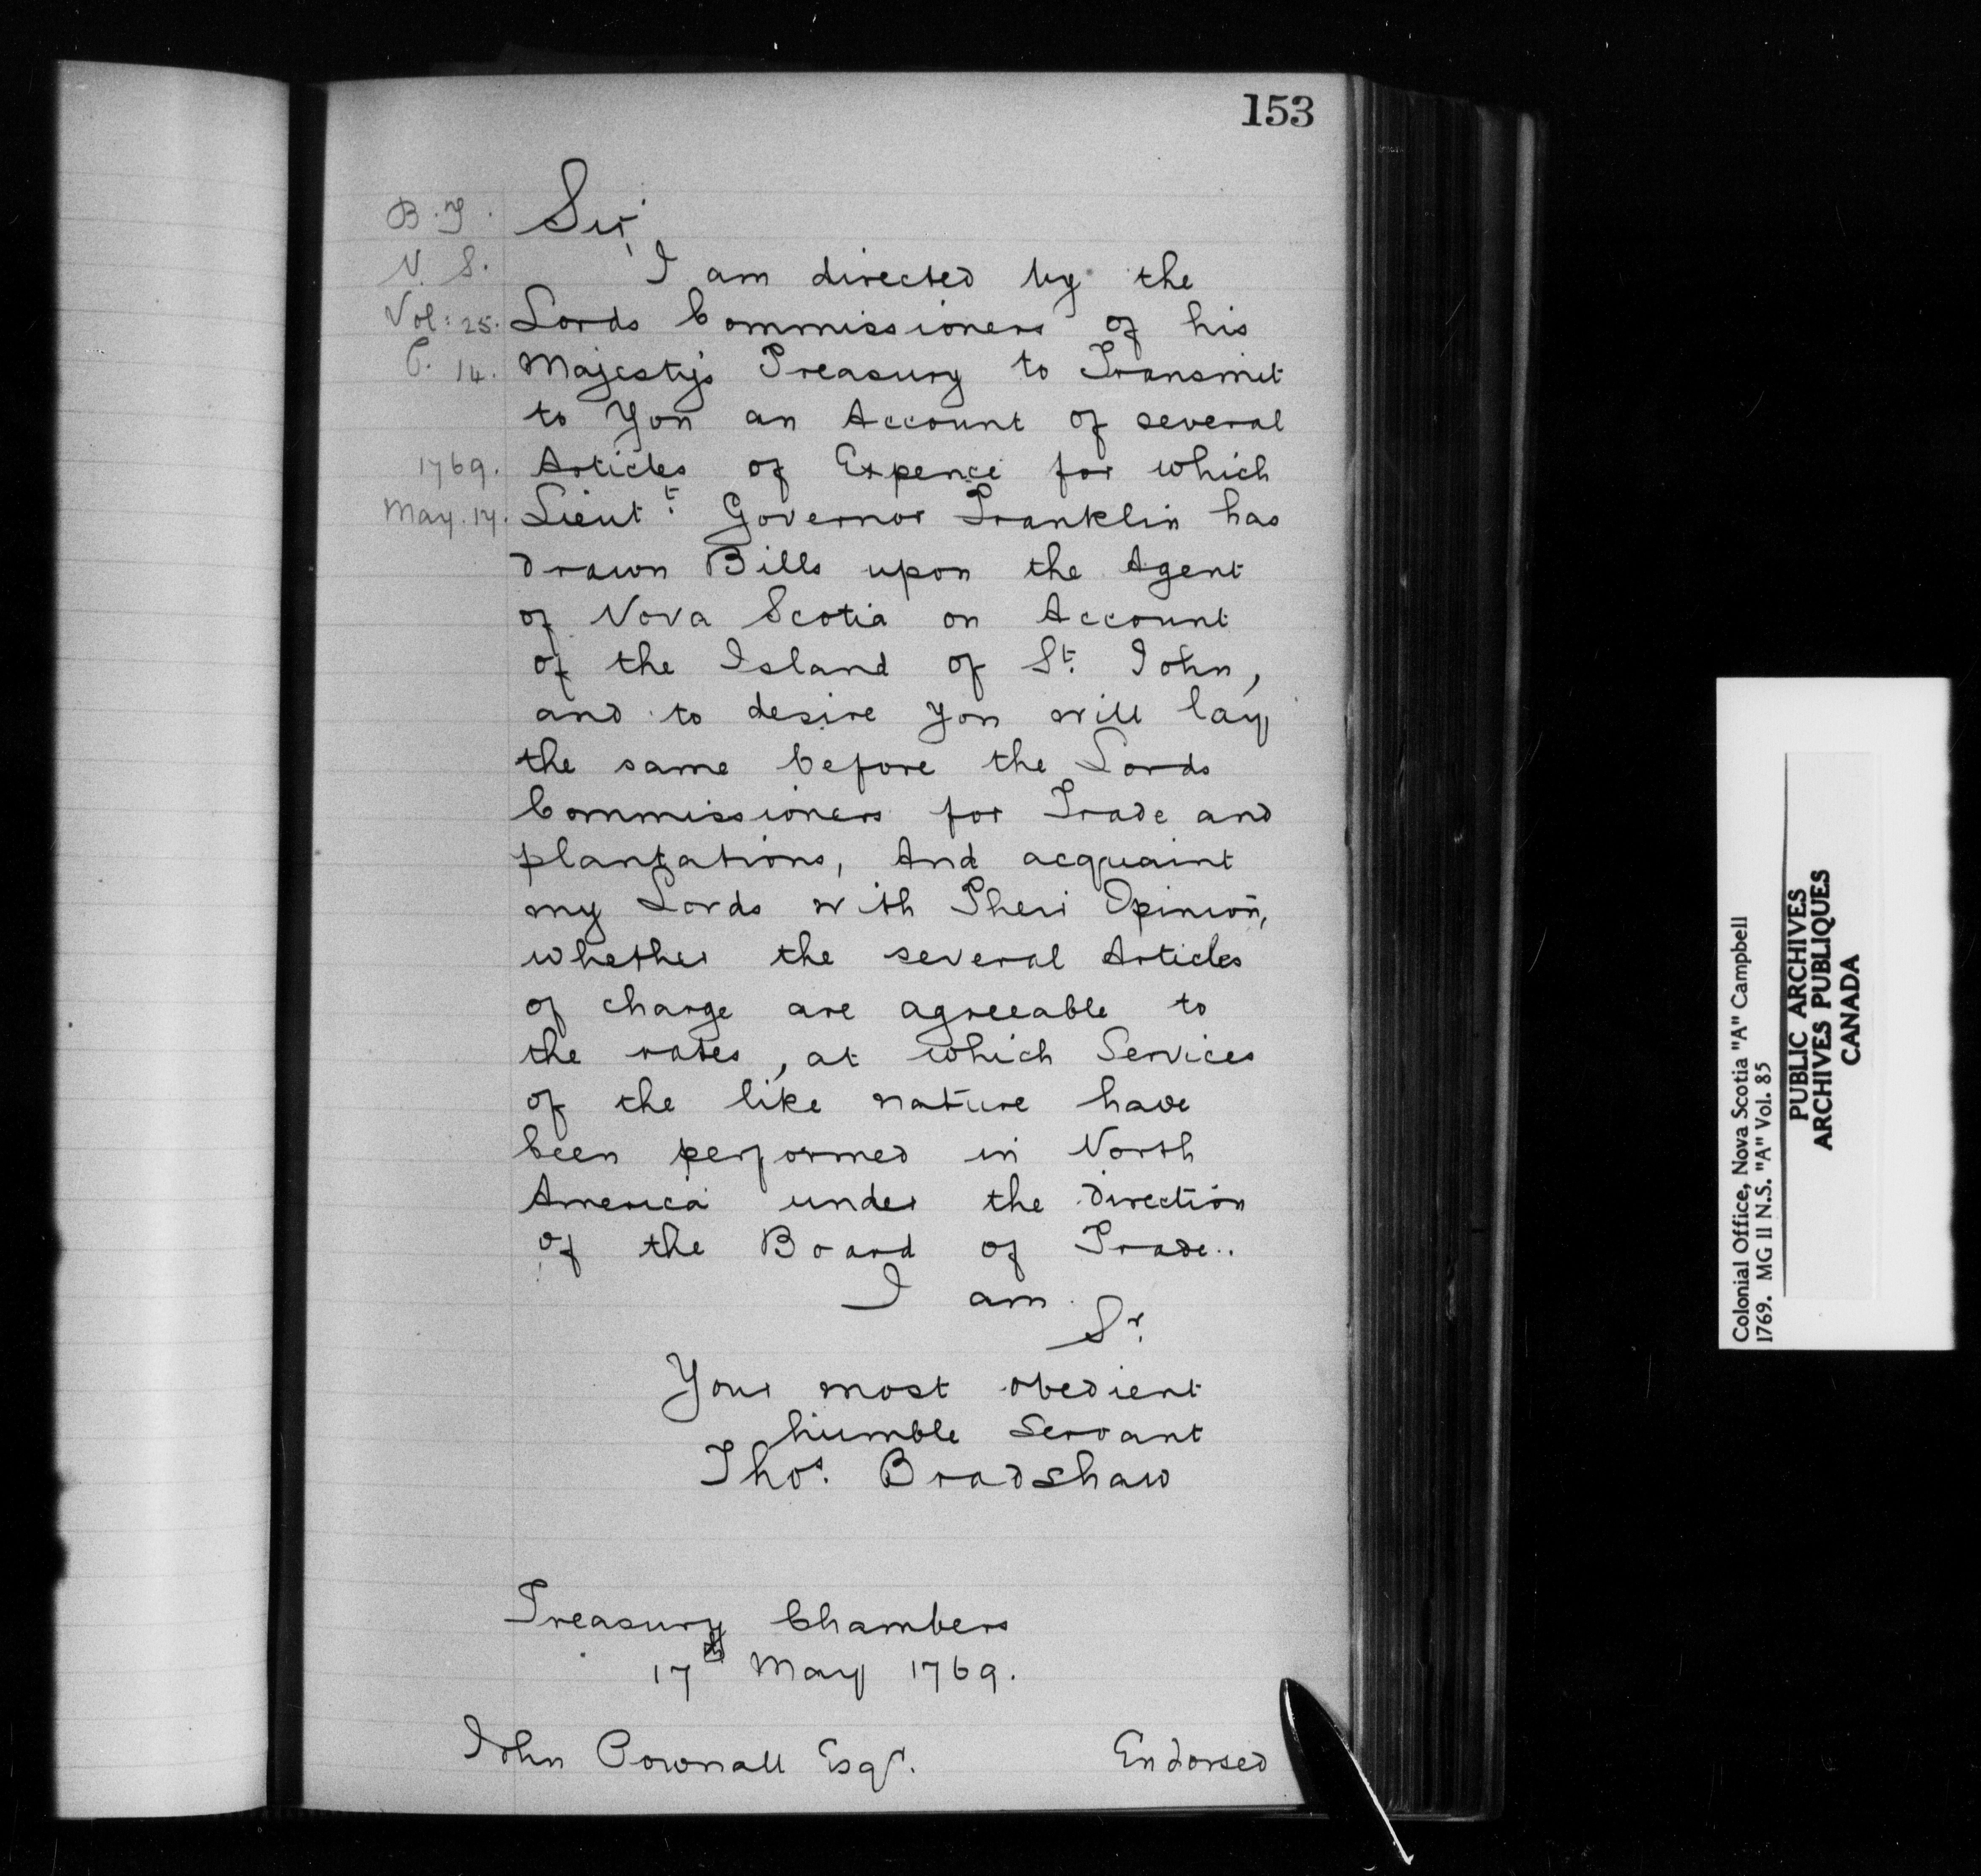 153
B.T.
N. S.
Vol: 25.
P. 14.
1769.
May. 17.
Sir,
I am directed by the
Lords Commissioners of his
Majesty's Treasury to Transmit
to You an Account of several
Articles of Expence for which
Lieut.t Governor Franklin has
drawn Bills upon the Agent
of Nova Scotia on Account
of the Island of St. John,
and to desire you will lay
the same before the Lords
Commissioners for Trade and
plantations, And acquaint
my Lords with Their Opinion,
whether the several Articles
of charge are agreeable to
the rates, at which Services
of the like nature have
been performed in North
America under the direction
of the Board of Trade..
I am
Sr.
Your most obedient
humble Servant
Thos. Bradshaw
Treasury Chambers
17th May 1769.
John Pownall Esqr.
Endorsed
Colonial Office, Nova Scotia "A" Campbell
1769. MG II N.S. "A" Vol. 85
PUBLIC ARCHIVES
ARCHIVES PUBLIQUES
CANADA